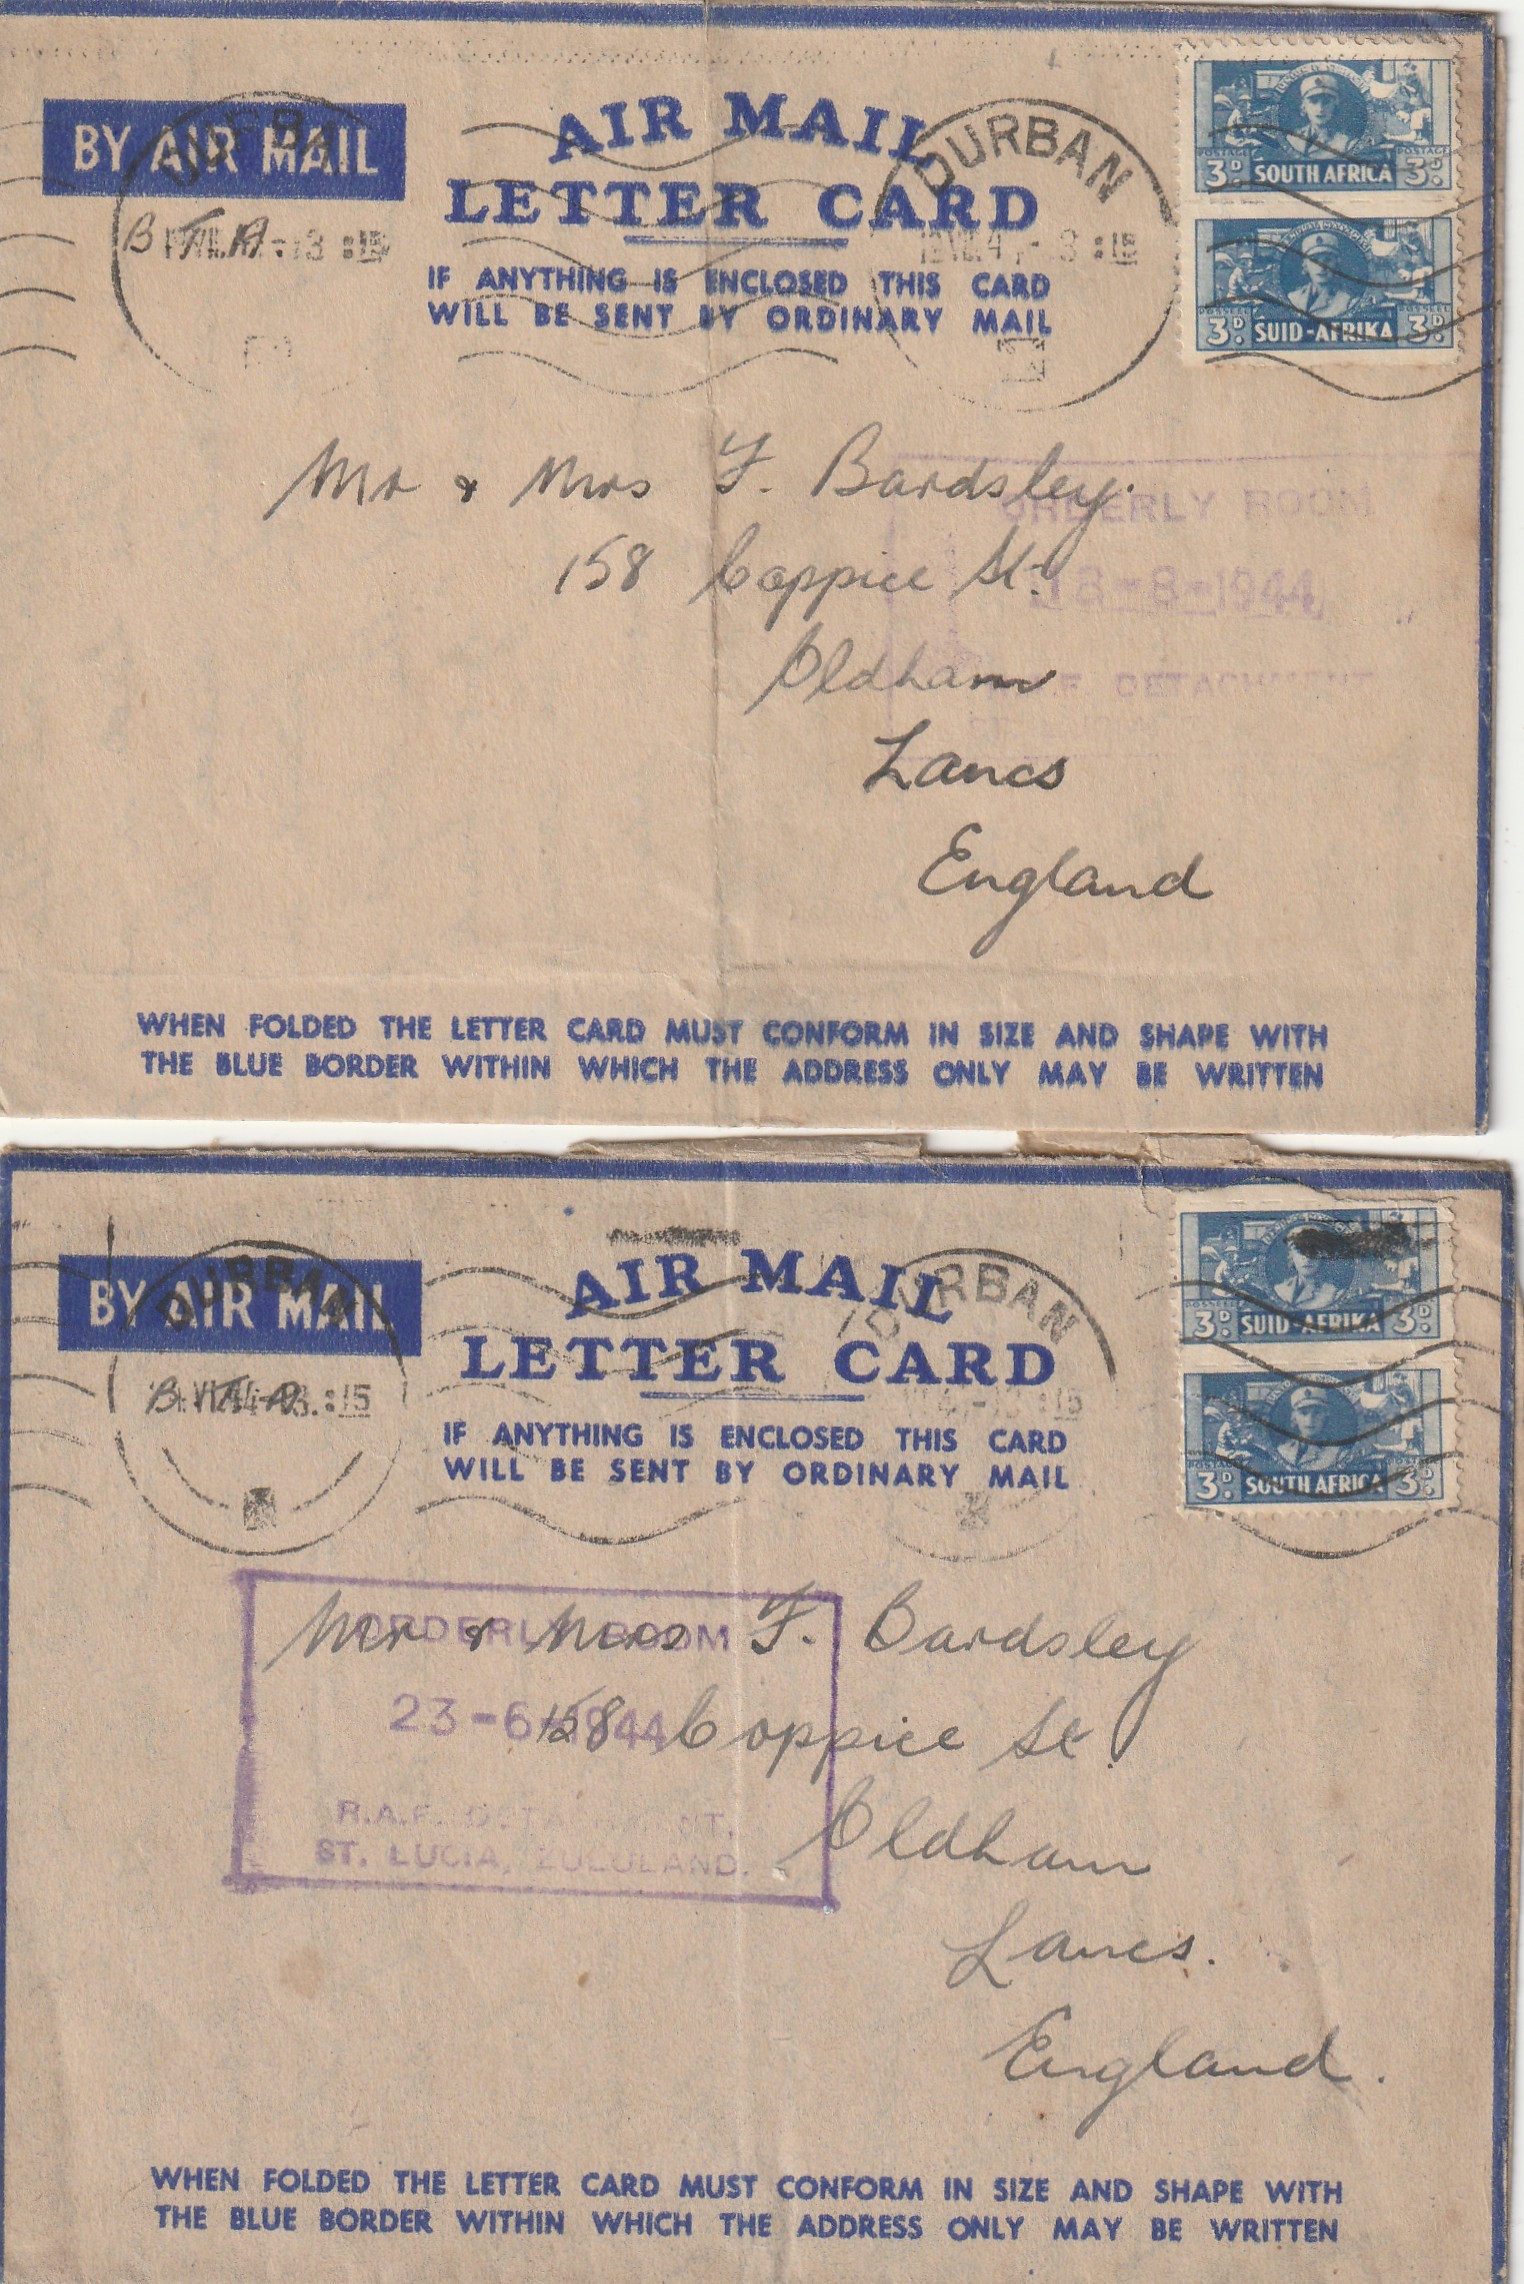 BY AIR MAIL
AIR MAIL
LETTER CARD
IF ANYTHING IS ENCLOSED THIS CARD
WILL BE SENT BY ORDINARY MAIL
DURBAN
DURBAN
POSTAGE POSTAGE
3D. SOUTH AFRICA 3D.
POSSEEL POSSEEL
3D. SUID-AFRIKA 3D.
Mr & Mrs F. Bardsley.
158 Coppice St.
Oldham
Lancs
England
ORDERLY ROOM
18-8-1944
DETACHMENT
WHEN FOLDED THE LETTER CARD MUST CONFORM IN SIZE AND SHAPE WITH
THE BLUE BORDER WITHIN WHICH THE ADDRESS ONLY MAY BE WRITTEN
BY AIR MAIL
AIR MAIL
LETTER CARD
IF ANYTHING IS ENCLOSED THIS CARD
WILL BE SENT BY ORDINARY MAIL
DURBAN
DURBAN
POSSEEL
3D. SUID-AFRIKA 3D.
POSTAGE POSTAGE
3D. SOUTH AFRICA 3D.
ORDERLY ROOM
23-6-1944
R.A.F. DETACHMENT,
ST. LUCIA, ZULULAND.
Mr & Mrs F. Bardsley
158 Coppice St.
Oldham
Lancs.
England.
WHEN FOLDED THE LETTER CARD MUST CONFORM IN SIZE AND SHAPE WITH
THE BLUE BORDER WITHIN WHICH THE ADDRESS ONLY MAY BE WRITTEN